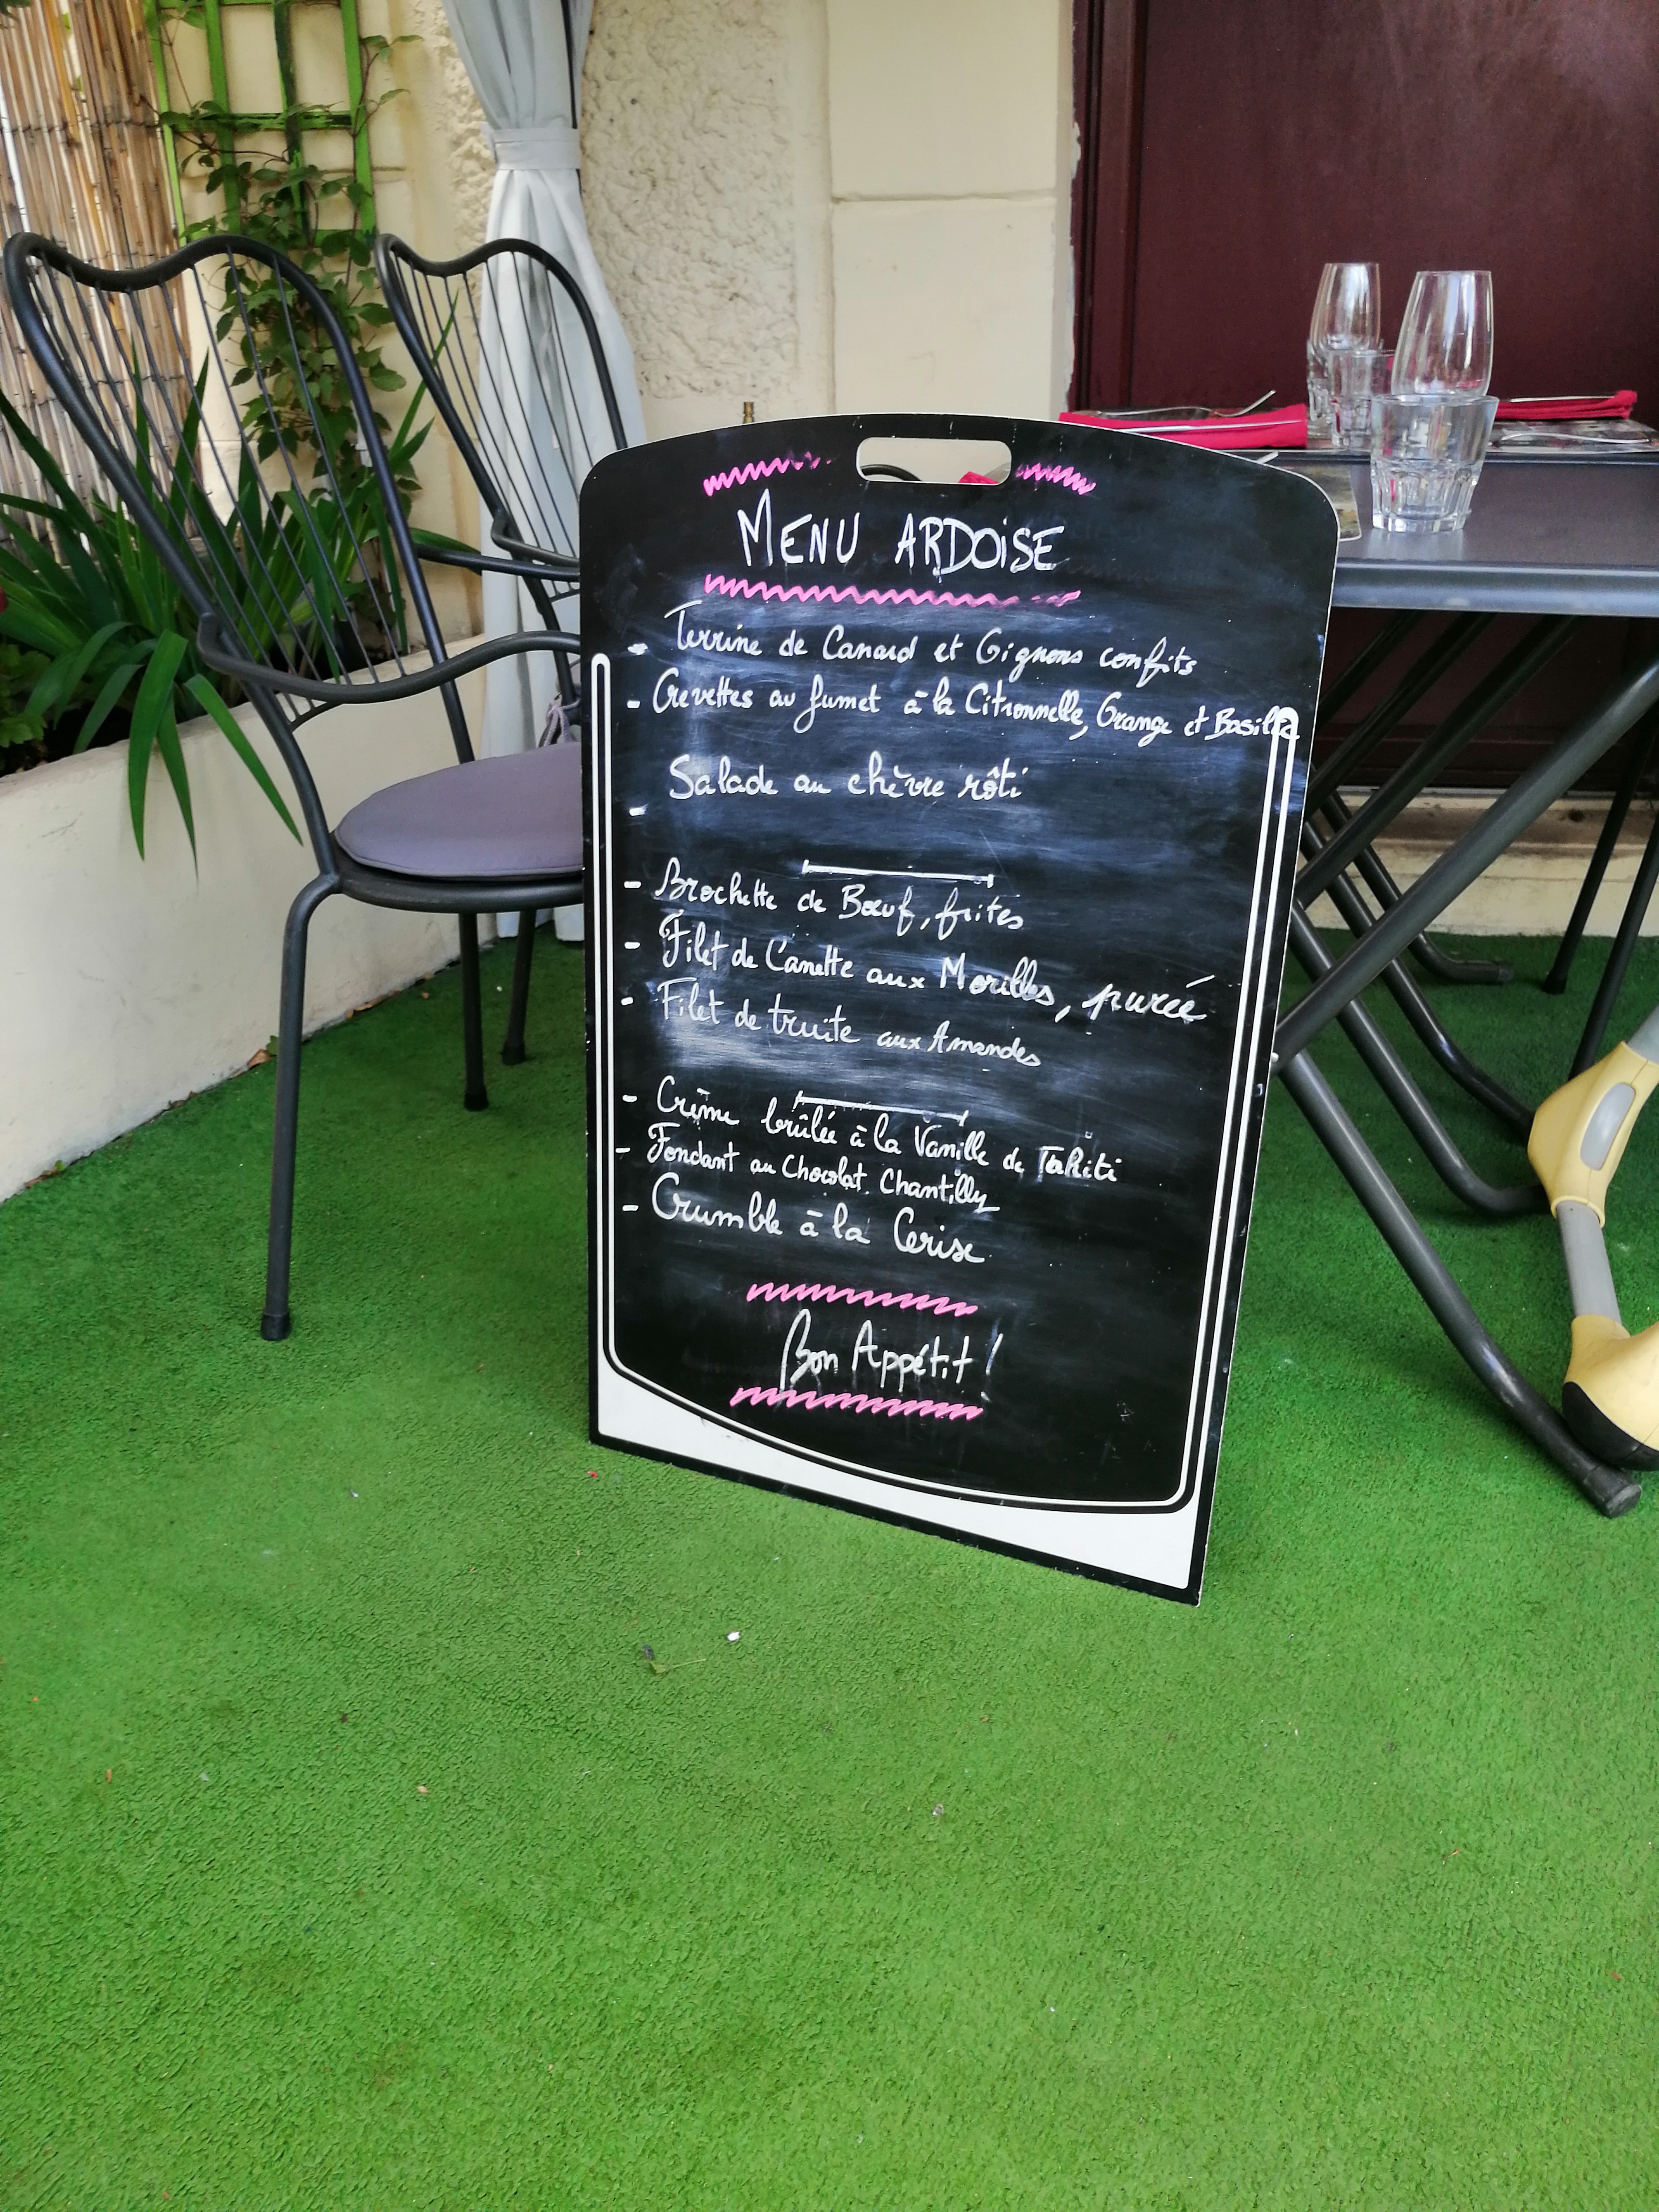 MENU ARDOISE
- Terrine de Canard et Oignons confits
- Crevettes au fumet à la Citronnelle, Orange et Basilic
- Salade au chèvre rôti
- Brochette de Bœuf, frites
- Filet de Canette aux Morilles, purée
- Filet de truite aux Amandes
- Crème brûlée à la Vanille de Tahiti
- Fondant au Chocolat Chantilly
- Crumble à la Cerise
Bon Appétit !